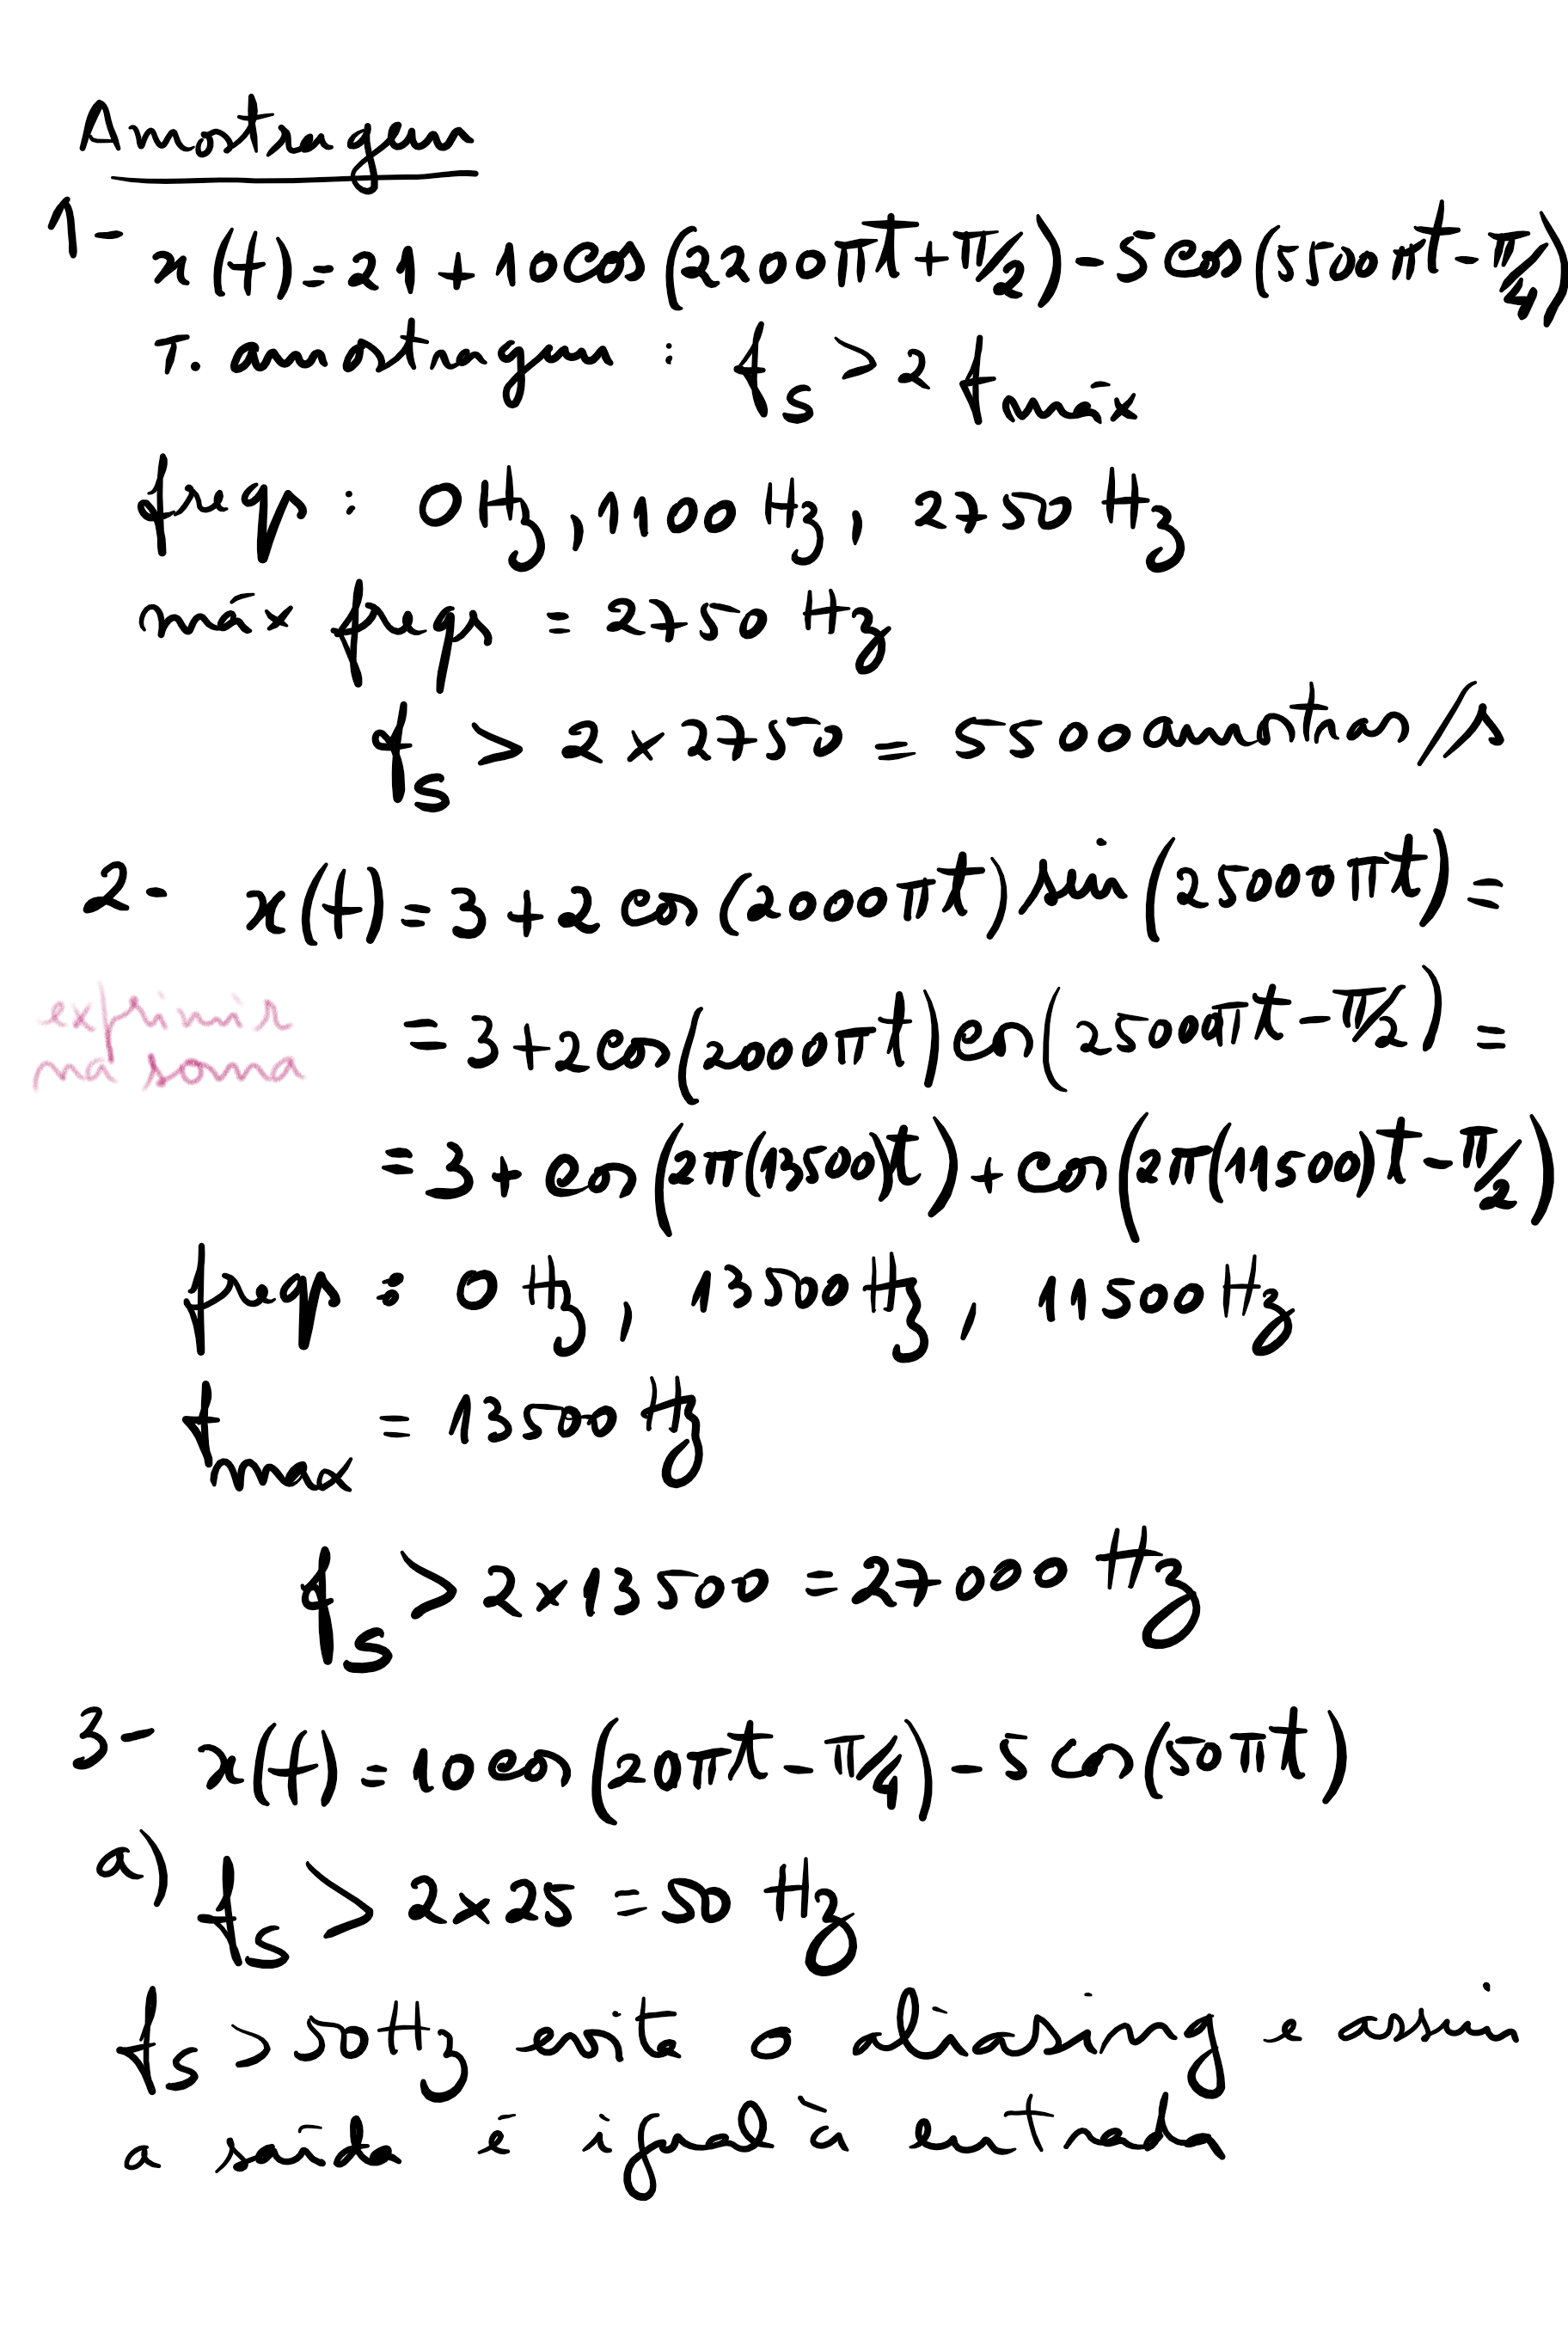 Amostragem
1- x(t)=21+10cos(2200πt+π/2)-5cos(5500πt-π/4)
T. amostragem : fs > 2 fmáx
freqs : 0Hz, 1100Hz, 2750Hz
máx freqs = 2750 Hz
fs > 2×2750 = 5500 amostras/s
2- x(t)=3+2cos(2000πt)sin(25000πt)=
exprimir
=3+2cos(2000πt)cos(25000πt-π/2)=
na soma
=3+cos(2π(13500)t)+cos(2π(11500)t-π/2)
freqs : 0Hz, 13500Hz, 11500Hz
fmax = 13500 Hz
fs > 2×13500 = 27000 Hz
3- x(t)=10cos(20πt-π/4)-5cos(50πt)
a) fs > 2×25 = 50 Hz
fs > 50Hz evita o aliasing e assim
a saída é igual à entrada